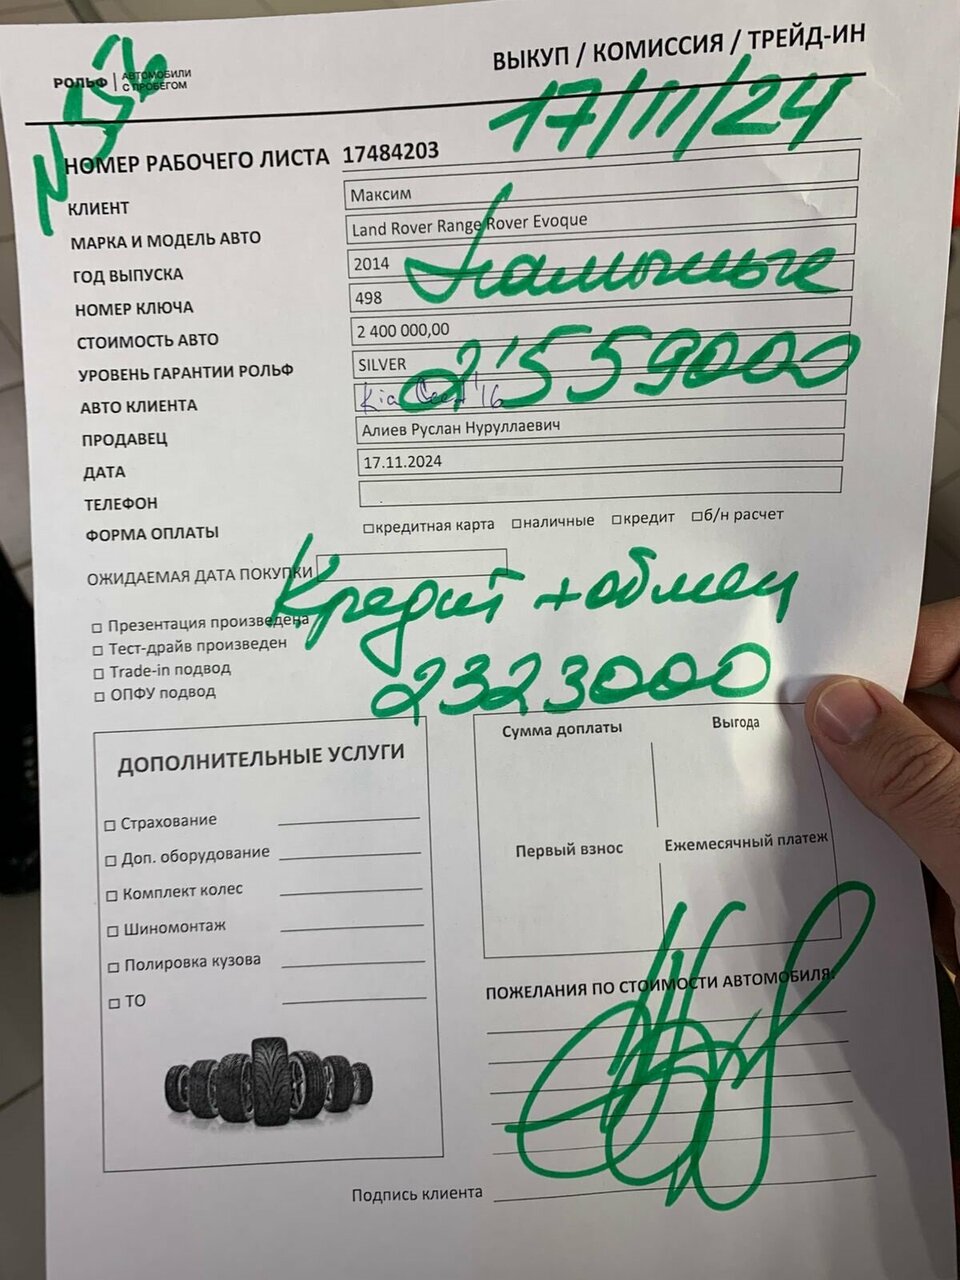 РОЛЬФ | АВТОМОБИЛИ С ПРОБЕГОМ
ВЫКУП / КОМИССИЯ / ТРЕЙД-ИН
17/11/24
НОМЕР РАБОЧЕГО ЛИСТА 17484203
КЛИЕНТ Максим
МАРКА И МОДЕЛЬ АВТО Land Rover Range Rover Evoque
ГОД ВЫПУСКА 2014
НОМЕР КЛЮЧА 498
СТОИМОСТЬ АВТО 2 400 000,00
УРОВЕНЬ ГАРАНТИИ РОЛЬФ SILVER
2'559000
АВТО КЛИЕНТА Kia Ceed '16
ПРОДАВЕЦ Алиев Руслан Нуруллаевич
ДАТА 17.11.2024
ТЕЛЕФОН
ФОРМА ОПЛАТЫ кредитная карта наличные кредит б/н расчет
ОЖИДАЕМАЯ ДАТА ПОКУПКИ
Кредит + обмен
Презентация произведена
Тест-драйв произведен
Trade-in подвод
ОПФУ подвод
2323000
ДОПОЛНИТЕЛЬНЫЕ УСЛУГИ
Страхование
Доп. оборудование
Комплект колес
Шиномонтаж
Полировка кузова
ТО
Сумма доплаты Выгода
Первый взнос Ежемесячный платеж
ПОЖЕЛАНИЯ ПО СТОИМОСТИ АВТОМОБИЛЯ:
Подпись клиента